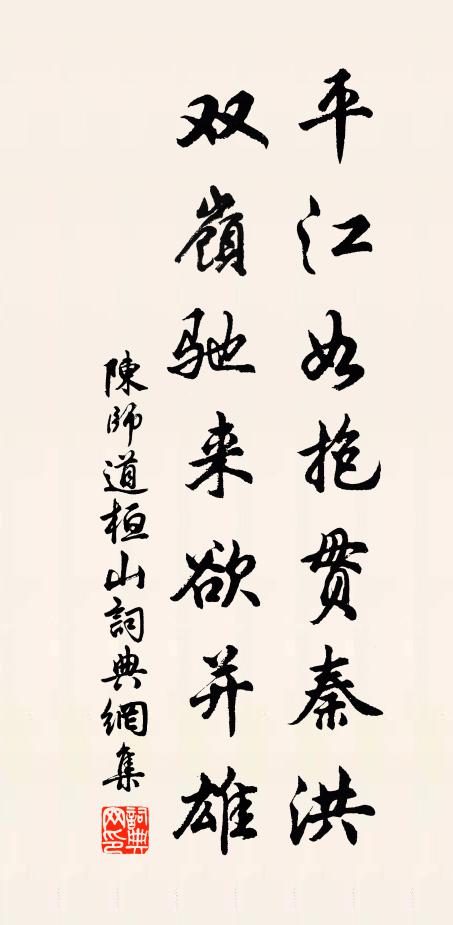 平江如抱贯秦洪
双嶺驰来欲并雄
陳師道桓山詞典網集
詞典网印